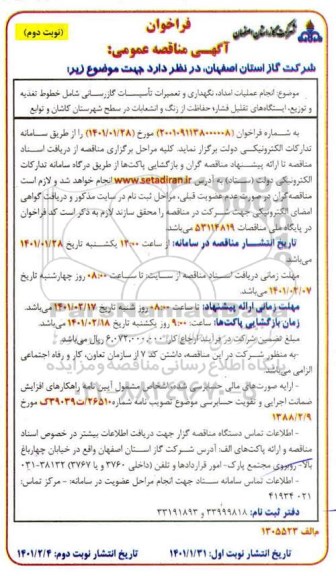 شرکت گاز استان اصفهان
فراخوان
(نوبت دوم)
آگهی مناقصه عمومی:
شرکت گاز استان اصفهان، در نظر دارد جهت موضوع زیر:
موضوع انجام عملیات امداد، نگهداری و تعمیرات تأسیسات گازرسانی شامل خطوط تغذیه
و توزیع، ایستگاههای تقلیل فشار، حفاظت از زنگ و انشعابات در سطح شهرستان کاشان و توابع
به شماره فراخوان (۲۰۰۱۰۹۱۱۳۸۰۰۰۰۰۸) مورخ (۱۴۰۱/۰۱/۲۸) را از طریق سامانه
تدارکات الکترونیکی دولت برگزار نماید. کلیه مراحل برگزاری مناقصه از دریافت اسناد
مناقصه تا ارائه پیشنهاد مناقصه گران و بازگشایی پاکت‌ها از طریق درگاه سامانه تدارکات
الکترونیکی (ستاد) به آدرس www.setadiran.ir انجام خواهد شد و لازم است
مناقصه‌گران در صورت عدم عضویت قبلی، مراحل ثبت نام در سایت مذکور و دریافت گواهی
امضای الکترونیکی جهت شرکت در مناقصه را محقق سازند لازم به ذکر است کد فراخوان
در پایگاه ملی مناقصات ۵۳۱۱۴۸۱۹ می‌باشد.
تاریخ انتشار مناقصه در سامانه: از ساعت ۱۲:۰۰ یکشنبه تاریخ ۱۴۰۱/۰۱/۲۸
می‌باشد
مهلت زمانی دریافت اسناد مناقصه از سایت: تا ساعت ۰۸:۰۰ روز چهارشنبه تاریخ
۱۴۰۱/۰۲/۰۷ می‌باشد.
مهلت زمانی ارائه پیشنهاد: تا ساعت ۰۸:۰۰ روز شنبه تاریخ ۱۴۰۱/۰۲/۱۷ می‌باشد.
زمان بازگشایی پاکت‌ها: ساعت ۹:۰۰ روز یکشنبه تاریخ ۱۴۰۱/۰۲/۱۸ می‌باشد
مبلغ تضمین شرکت در فرآیند ارجاع کار: ریال می‌باشد
-به منظور شرکت در این مناقصه، داشتن کد ۷ از سازمان تعاون، کار و رفاه اجتماعی
الزامی می‌باشد.
- ارایه صورت‌های مالی حسابرسی شده اشخاص مشمول آیین نامه راهکارهای افزایش
ضمانت اجرایی و تقویت حسابرسی موضوع تصویب نامه شماره ۲۶۵۱۰/ت۳۹۰۳۹ک
۱۳۸۸/۲/۹
- اطلاعات تماس دستگاه مناقصه گزار جهت دریافت اطلاعات بیشتر در خصوص اسناد
مناقصه و ارائه پاکت‌های الف: آدرس شرکت گاز استان اصفهان واقع در خیابان چهارباغ
بالا- روبروی مجتمع پارک- امور قراردادها و تلفن (داخلی ۳۷۶۰ و یا ۳۷۶۷) ۳۸۱۳۲-۰۳۱
- اطلاعات تماس سامانه ستاد جهت انجام مراحل عضویت در سامانه: - مرکز تماس:
۴۱۹۳۴ ۰۲۱
دفتر ثبت نام: ۳۳۹۹۹۸۱۸ و ۳۳۱۹۱۸۹۳
م‌الف ۱۳۰۵۵۲۳
تاریخ انتشار نوبت اول: ۱۴۰۱/۱/۳۱ تاریخ انتشار نوبت دوم: ۱۴۰۱/۲/۴
پایگاه اطلاع رسانی مناقصه و مزایده